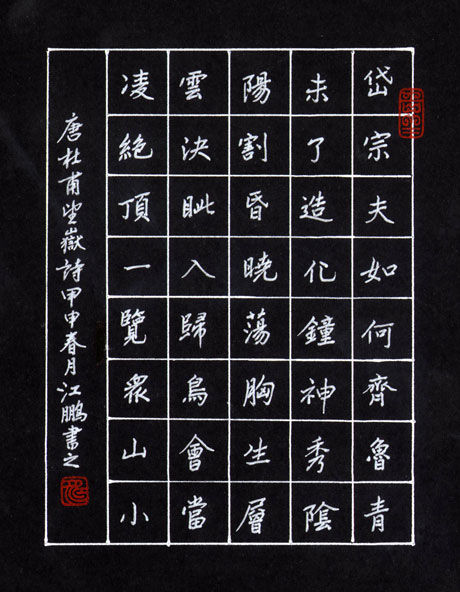 岱宗夫如何齊魯青
未了造化鐘神秀陰
陽割昏曉蕩胸生層
雲決眦入歸鳥會當
凌絕頂一覽衆山小
唐杜甫望嶽詩甲申春月江鵬書之